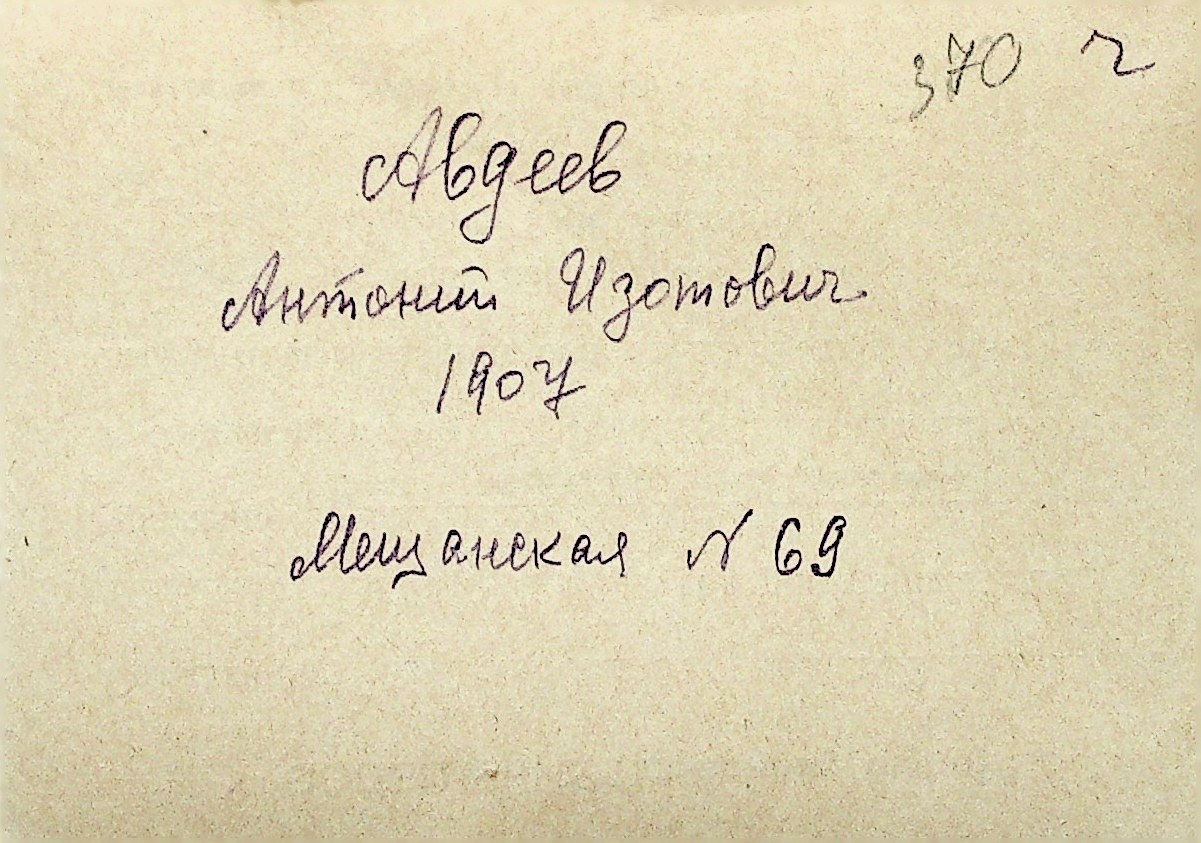 370 ч
Авдеев
Антоний Изотович
1907
Мещанская N 69